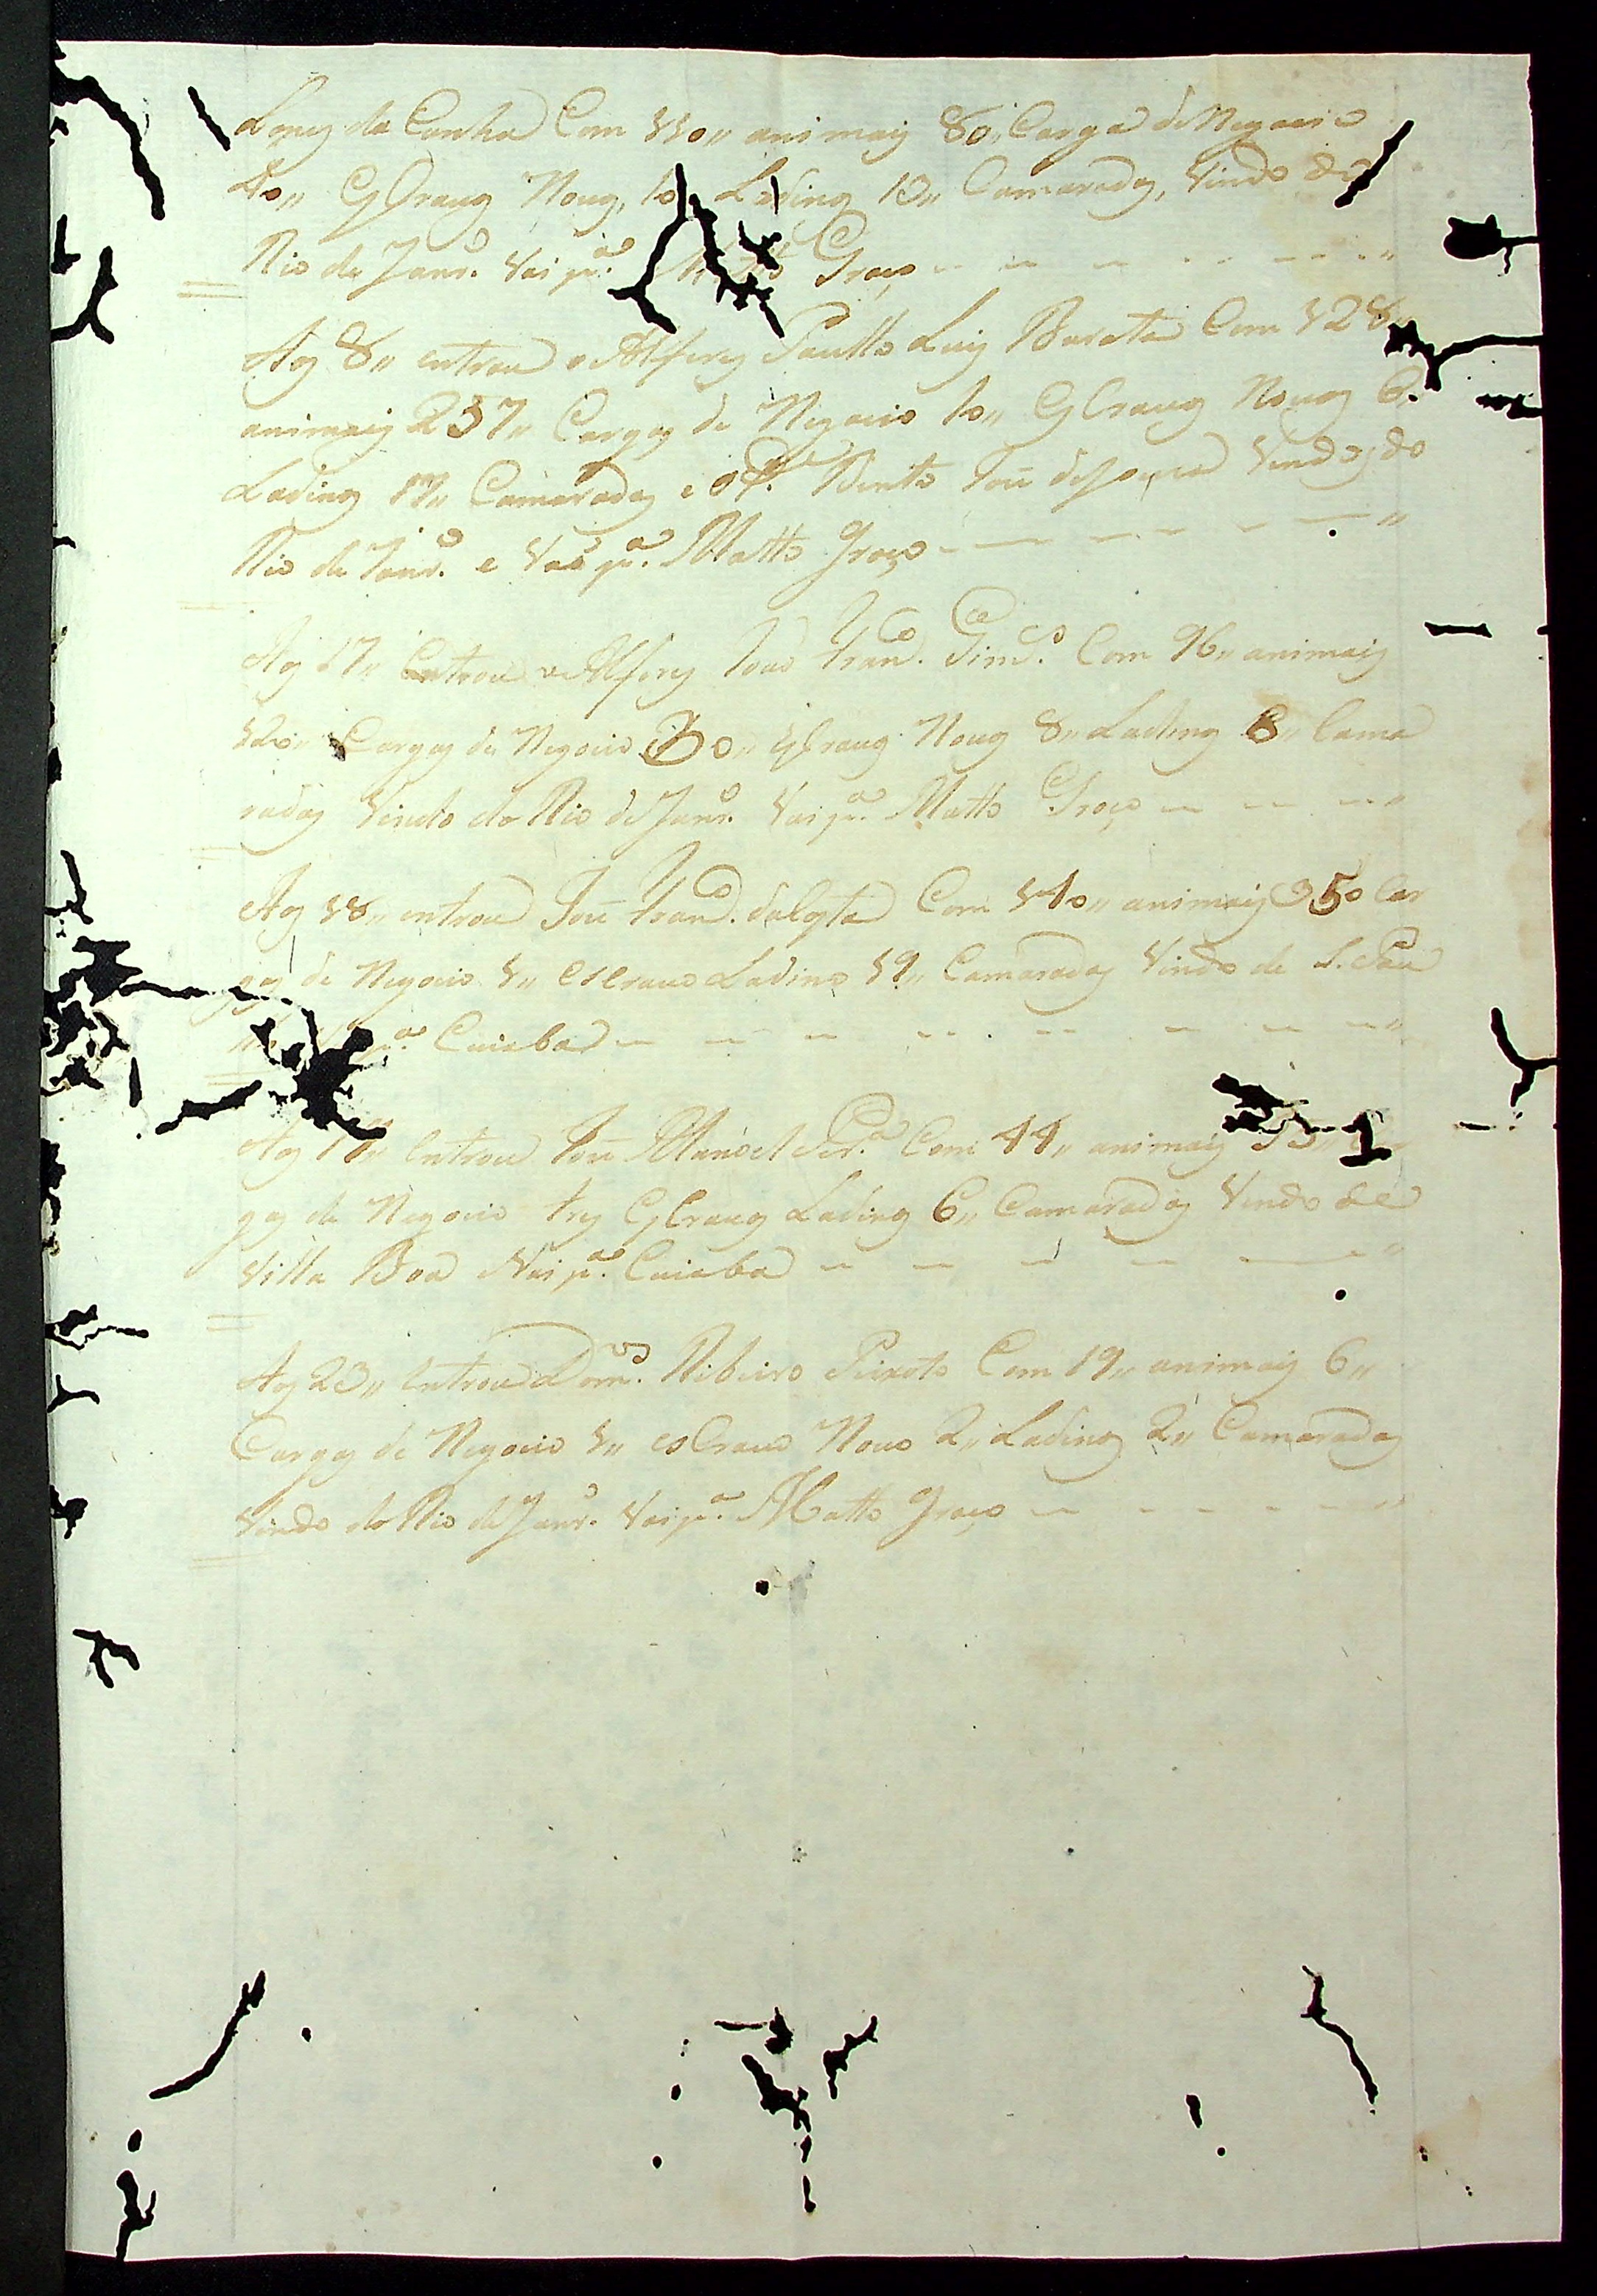 Lopes da Cunha Com 110,, animais 80,, Carga de Negocio
40,, Escravos Novos, 10,, Ladinos 10,, Camaradas, Vindo de
Rio de Janr.º Vai p.ª Groço
Aos 8,, entrou o Alferes Paullo Luis Barata Com 128,,
animais 237,, Cargas de Negocio 10,, Escravos Novos 6,,
Ladinos 17,, Camaradas e o Bento Joze de Souza Vindos do
Rio de Janr.º e Vai p.ª Matto Groço
Aos 17,, Entrou o Alferes João Fran.co Com 96,, animais
120,, Cargas de Negocio 30,, Escravos Novos 8,, Ladinos 8,, Cama
radas Vindo do Rio de Janr.º Vai p.ª Matto Groço
Aos 18,, entrou Joze Fran.co da Costa Com 140,, animais 350 Car
gas de Negocio 1,, escravo Ladino 19,, Camaradas Vindo de S. Pau
p.ª Cuiaba
Aos entrou Joze Manoel Per.ª Com 44,, animais
gas de Negocio tres Escravos Ladinos 6,, Camaradas Vindo de
Villa Boa Vai p.ª Cuiaba
Aos 23,, entrou Dom.os Ribeiro Peixoto Com 19,, animais 6,,
Cargas de Negocio 1,, escravo Novo 2,, Ladinos 2,, Camaradas
Vindo do Rio de Janr.º Vai p.ª Matto Groço